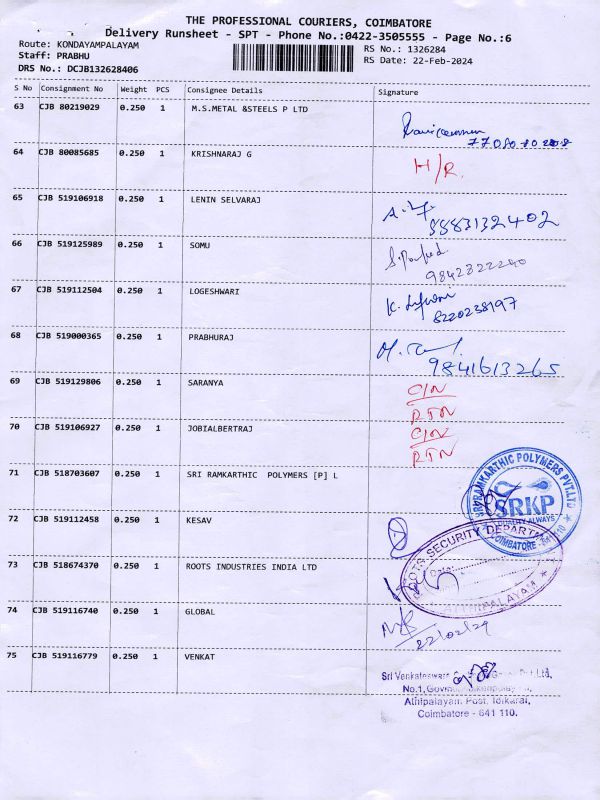 THE PROFESSIONAL COURIERS, COIMBATORE
Delivery Runsheet - SPT - Phone No.:0422-3505555 - Page No.:6
Route: KONDAYAMPALAYAM RS No.: 1326284
Staff: PRABHU RS Date: 22-Feb-2024
DRS No.: DCJB132628406
S No Consignment No Weight PCS Consignee Details Signature
63 CJB 80219029 0.250 1 M.S.METAL &STEELS P LTD
64 CJB 80085685 0.250 1 KRISHNARAJ G H/R.
65 CJB 519106918 0.250 1 LENIN SELVARAJ
8883132402
66 CJB 519125989 0.250 1 SOMU
9842322240
67 CJB 519112504 0.250 1 LOGESHWARI
8220238197
68 CJB 519000365 0.250 1 PRABHURAJ
9841613265
69 CJB 519129806 0.250 1 SARANYA C/N
RTN
70 CJB 519106927 0.250 1 JOBIALBERTRAJ C/N
RTN
71 CJB 518703607 0.250 1 SRI RAMKARTHIC POLYMERS [P] L
SRI RAMKARTHIC POLYMERS PVT.LTD
SRKP
QUALITY ALWAYS
COIMBATORE - 641 110
72 CJB 519112458 0.250 1 KESAV
73 CJB 518674370 0.250 1 ROOTS INDUSTRIES INDIA LTD
ROOTS SECURITY DEPART
Date:
ATHIPALAYAM
74 CJB 519116740 0.250 1 GLOBAL
22/02/24
75 CJB 519116779 0.250 1 VENKAT
Sri Venkateswara Pvt.Ltd,
No.1,
Athipalayam. Post, Idikarai,
Coimbatore - 641 110.